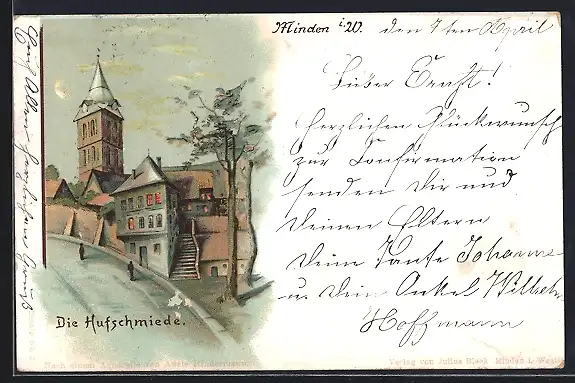 Minden i. W. den 7ten April
Lieber Ernst!
Herzlichen Glückwunsch
zur Confirmation
senden Dir und
Deinen Eltern
Deine Tante Johanne
u. Dein Onkel Wilhelm
Hoffmann
Die Hufschmiede.
Verlag von Julius Minden i. Westf.